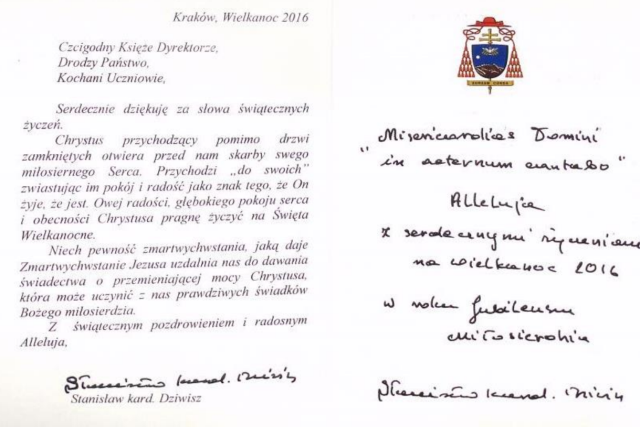 Kraków, Wielkanoc 2016
Czcigodny Księże Dyrektorze,
Drodzy Państwo,
Kochani Uczniowie,
Serdecznie dziękuję za słowa świątecznych
życzeń.
Chrystus przychodzący pomimo drzwi
zamkniętych otwiera przed nam skarby swego
miłosiernego Serca. Przychodzi „do swoich”
zwiastując im pokój i radość jako znak tego, że On
żyje, że jest. Owej radości, głębokiego pokoju serca
i obecności Chrystusa pragnę życzyć na Święta
Wielkanocne.
Niech pewność zmartwychwstania, jaką daje
Zmartwychwstanie Jezusa uzdalnia nas do dawania
świadectwa o przemieniającej mocy Chrystusa,
która może uczynić z nas prawdziwych świadków
Bożego miłosierdzia.
Z świątecznym pozdrowieniem i radosnym
Alleluja,
Stanisław kard. Dziwisz
Stanisław kard. Dziwisz
"Misericordias Domini
in aeternum cantabo"
Alleluja
z serdecznymi życzeniami
na wielkanoc 2016
w roku Jubileuszu
Miłosierdzia
Stanisław kard. Dziwisz